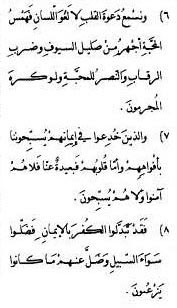 (٦) ونسمع دعوة القلب لا لغو اللسان فهمس
المحبة أجهر من صليل السيوف وضرب
الرقاب والنصر للمحبة ولو كره
المجرمون.
(٧) والذين خدعوا في إيمانهم يسبحوننا
بأفواههم وأما قلوبهم فبعيدة عنا فلا هم
آمنوا ولا هم يسبحون.
(٨) فقد تبدلوا الكفر بالإيمان فضلوا
سواء السبيل وضل عنهم ما كانوا
يزعمون.